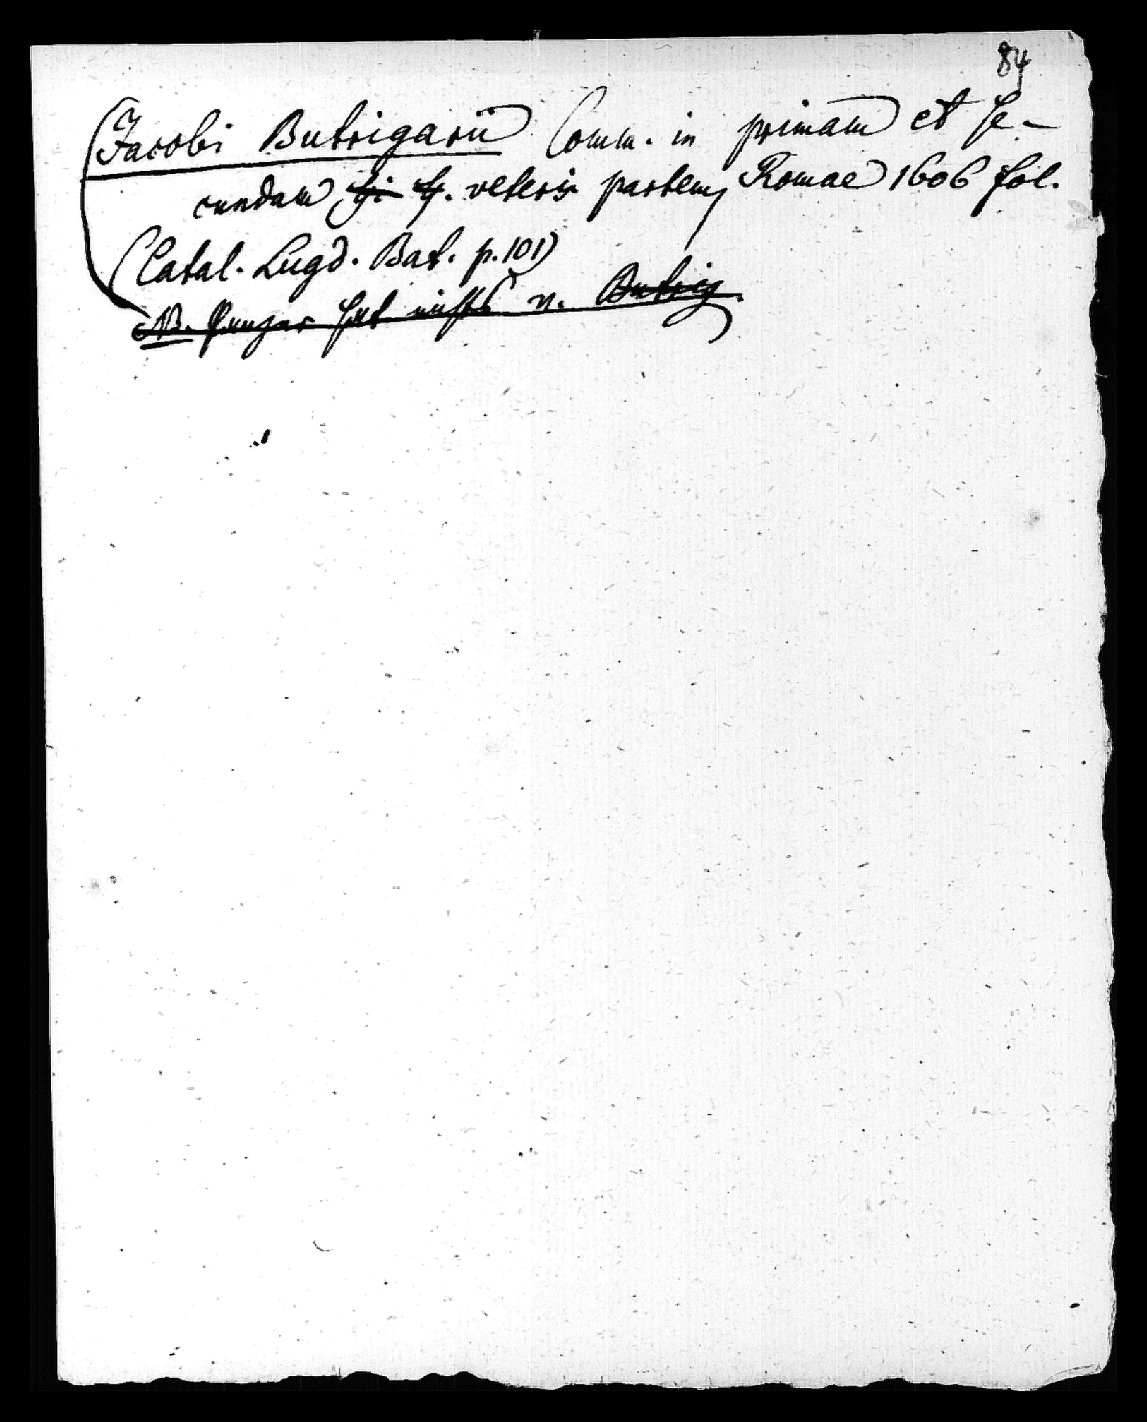 84
Jacobi Butrigarii Comm. in primam et se-
cundam ff. veteris partem, Romae 1606 fol.
(Catal. Lugd. Bat. p. 101)
NB. Panzer hat nichts v. Butrig.